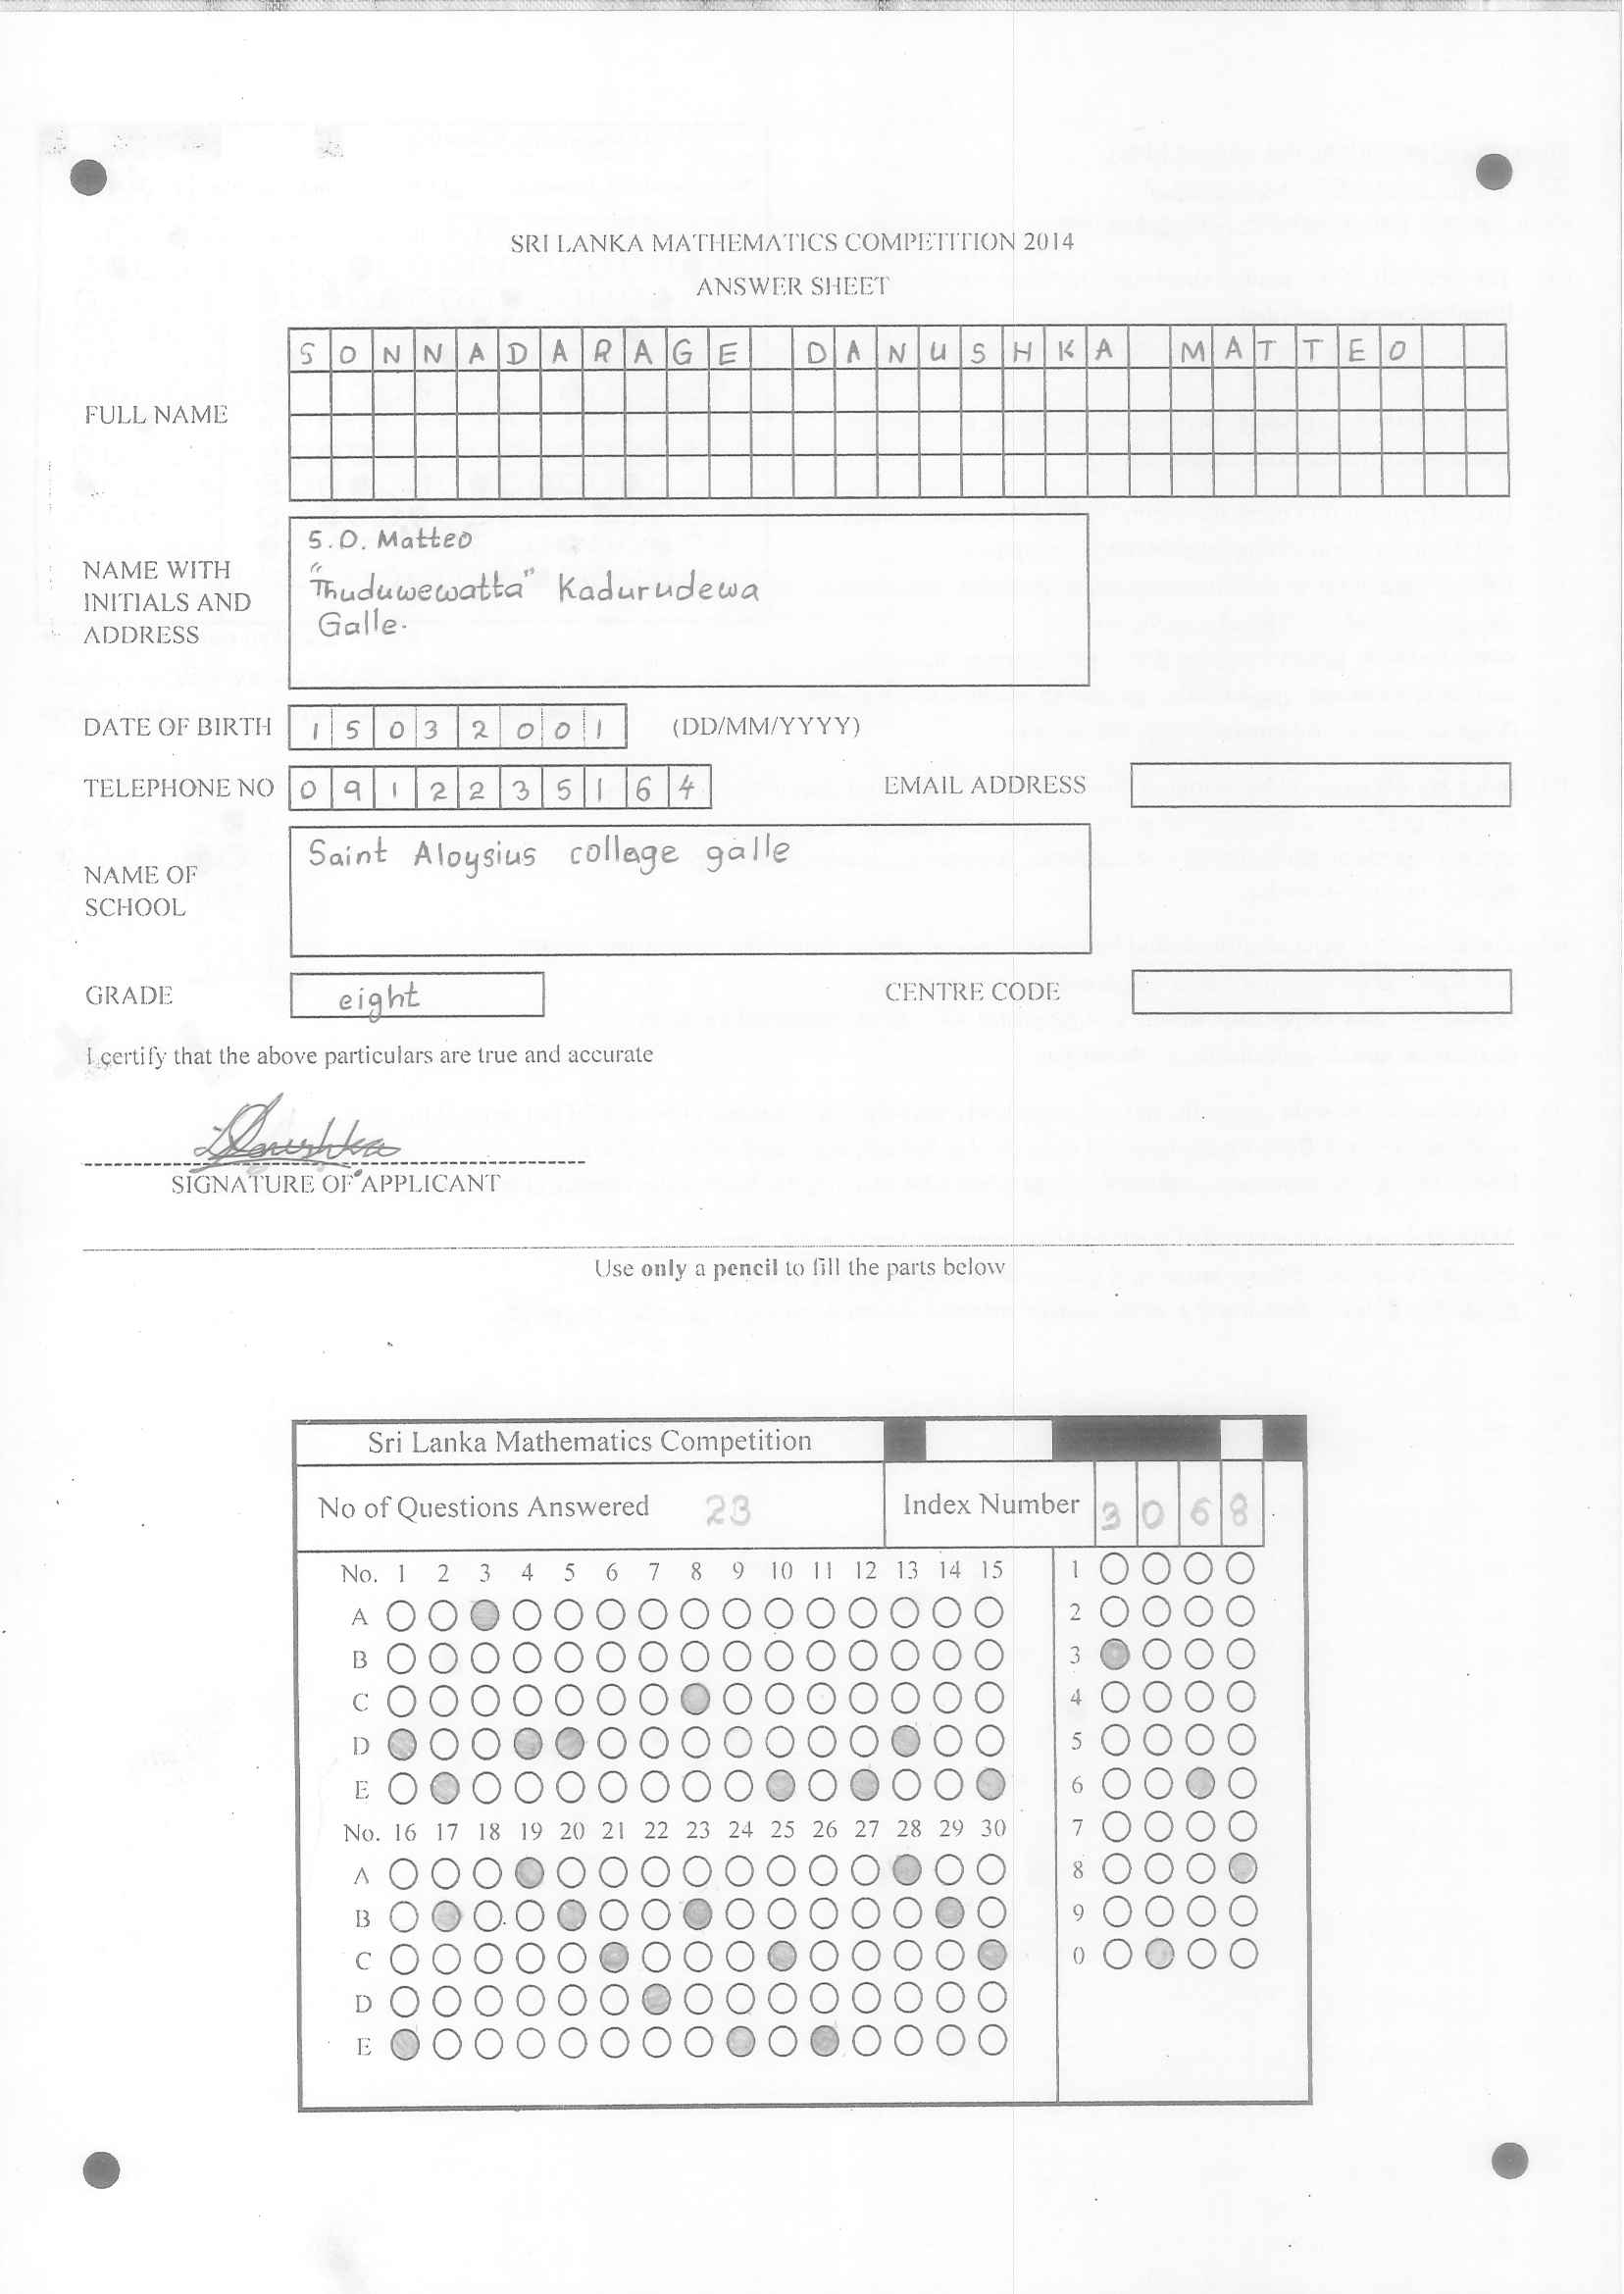 SRI LANKA MATHEMATICS COMPETITION 2014
ANSWER SHEET
FULL NAME
SONNADARAGE DANUSHKA MATTEO
NAME WITH INITIALS AND ADDRESS
S.D. Matteo
"Thuduwewatta" Kadurudewa
Galle.
DATE OF BIRTH 15032001 (DD/MM/YYYY)
TELEPHONE NO 0912235164 EMAIL ADDRESS
NAME OF SCHOOL
Saint Aloysius collage galle
GRADE eight CENTRE CODE
I certify that the above particulars are true and accurate
Danushka
SIGNATURE OF APPLICANT
Use only a pencil to fill the parts below
Sri Lanka Mathematics Competition
No of Questions Answered 23 Index Number 3068
No. 1 2 3 4 5 6 7 8 9 10 11 12 13 14 15 1
A 2
B 3
C 4
D 5
E 6
No. 16 17 18 19 20 21 22 23 24 25 26 27 28 29 30 7
A 8
B 9
C 0
D
E